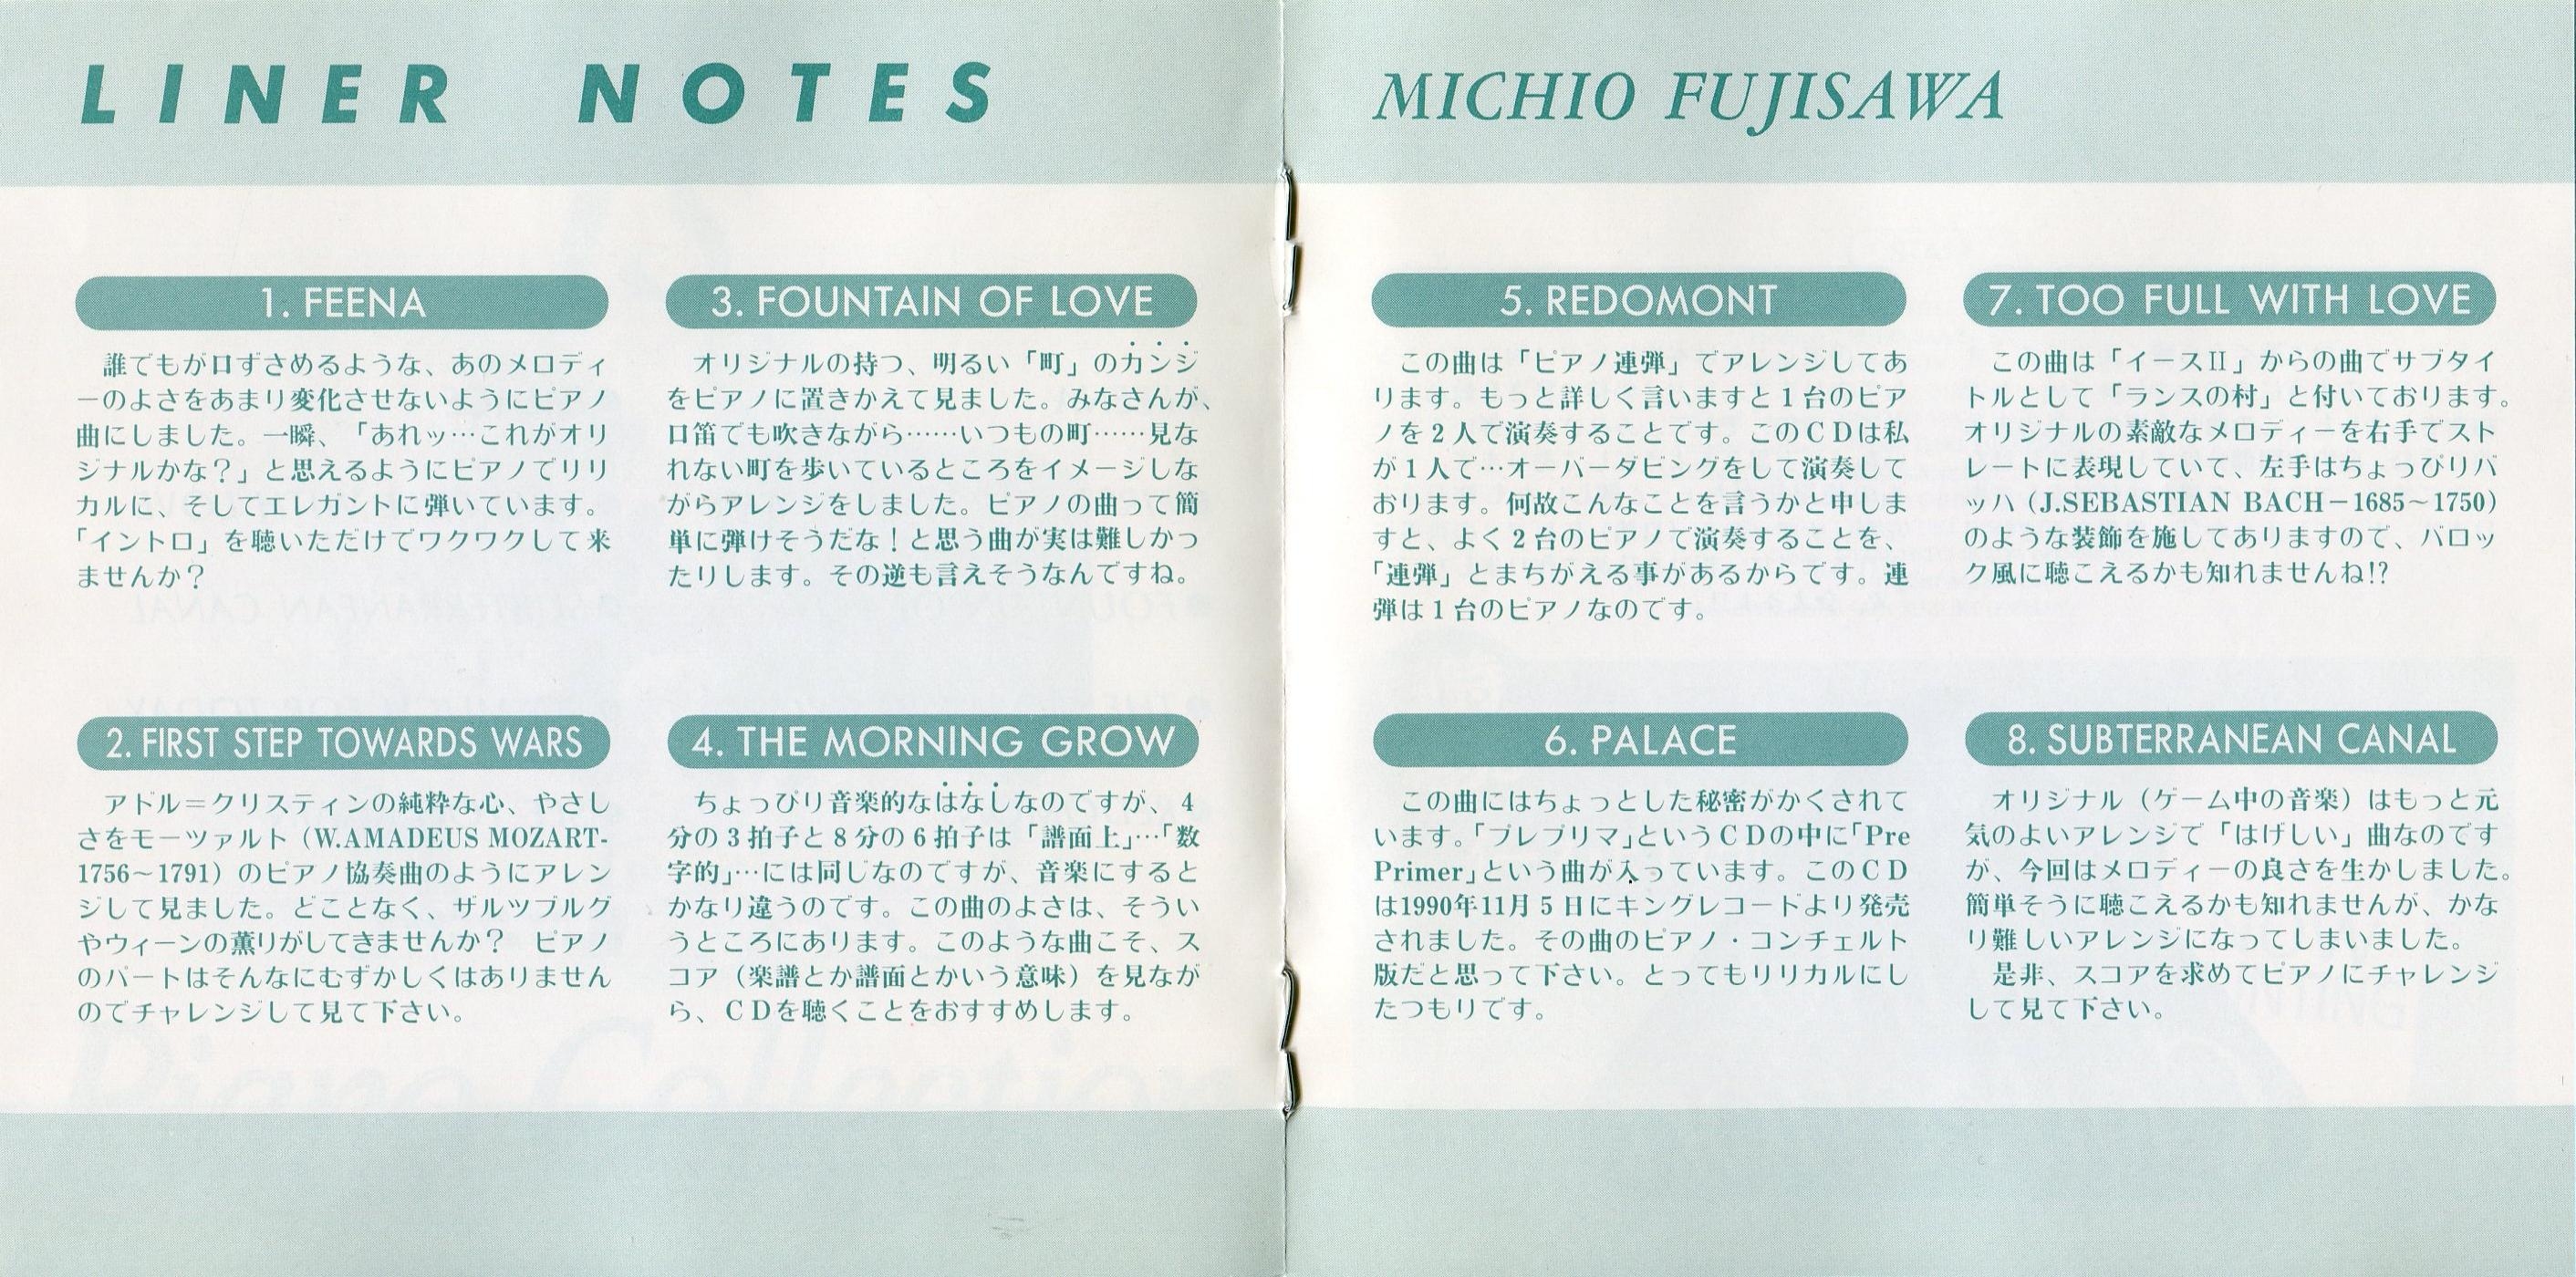 LINER NOTES
1. FEENA
誰でもが口ずさめるような、あのメロディ
ーのよさをあまり変化させないようにピアノ
曲にしました。一瞬、「あれッ…これがオリ
ジナルかな？」と思えるようにピアノでリリ
カルに、そしてエレガントに弾いています。
「イントロ」を聴いただけでワクワクして来
ませんか？
2. FIRST STEP TOWARDS WARS
アドル＝クリスティンの純粋な心、やさし
さをモーツァルト（W.AMADEUS MOZART-
1756〜1791）のピアノ協奏曲のようにアレン
ジして見ました。どことなく、ザルツブルグ
やウィーンの薫りがしてきませんか？　ピアノ
のパートはそんなにむずかしくはありません
のでチャレンジして見て下さい。
3. FOUNTAIN OF LOVE
オリジナルの持つ、明るい「町」のカンジ
をピアノに置きかえて見ました。みなさんが、
口笛でも吹きながら……いつもの町……見な
れない町を歩いているところをイメージしな
がらアレンジをしました。ピアノの曲って簡
単に弾けそうだな！と思う曲が実は難しかっ
たりします。その逆も言えそうなんですね。
4. THE MORNING GROW
ちょっぴり音楽的なはなしなのですが、4
分の3拍子と8分の6拍子は「譜面上」…「数
字的」…には同じなのですが、音楽にすると
かなり違うのです。この曲のよさは、そうい
うところにあります。このような曲こそ、ス
コア（楽譜とか譜面とかいう意味）を見なが
ら、CDを聴くことをおすすめします。
MICHIO FUJISAWA
5. REDOMONT
この曲は「ピアノ連弾」でアレンジしてあ
ります。もっと詳しく言いますと1台のピア
ノを2人で演奏することです。このCDは私
が1人で…オーバーダビングをして演奏して
おります。何故こんなことを言うかと申しま
すと、よく2台のピアノで演奏することを、
「連弾」とまちがえる事があるからです。連
弾は1台のピアノなのです。
6. PALACE
この曲にはちょっとした秘密がかくされて
います。「プレプリマ」というCDの中に「Pre
Primer」という曲が入っています。このCD
は1990年11月5日にキングレコードより発売
されました。その曲のピアノ・コンチェルト
版だと思って下さい。とってもリリカルにし
たつもりです。
7. TOO FULL WITH LOVE
この曲は「イースII」からの曲でサブタイ
トルとして「ランスの村」と付いております。
オリジナルの素敵なメロディーを右手でスト
レートに表現していて、左手はちょっぴりバ
ッハ（J.SEBASTIAN BACH－1685〜1750）
のような装飾を施してありますので、バロッ
ク風に聴こえるかも知れませんね!?
8. SUBTERRANEAN CANAL
オリジナル（ゲーム中の音楽）はもっと元
気のよいアレンジで「はげしい」曲なのです
が、今回はメロディーの良さを生かしました。
簡単そうに聴こえるかも知れませんが、かな
り難しいアレンジになってしまいました。
是非、スコアを求めてピアノにチャレンジ
して見て下さい。